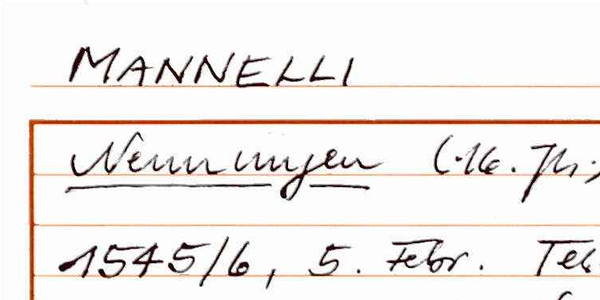 MANNELLI
Nennungen (16. Jh.)
1545/6, 5. Febr. Tes